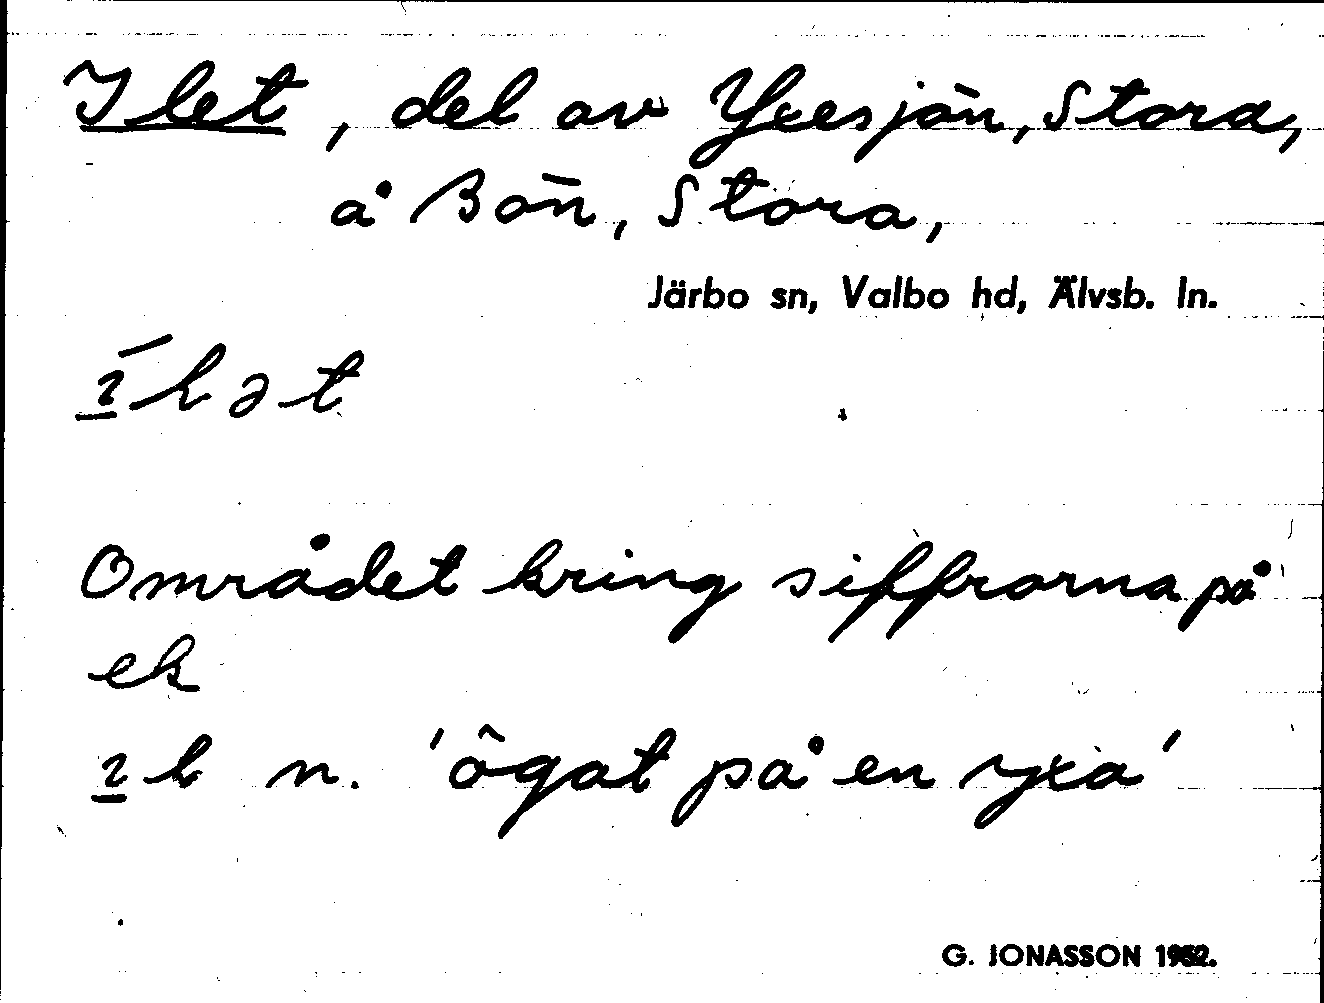 Ilet, del av Yxesjön, Stora,
å Bön, Stora,
Järbo sn, Valbo hd, Älvsb. ln.
ɩ̲́lət
Området kring siffrorna på
ek
ɩ̲l n. 'ögat på en yxa'
G. JONASSON 1962.